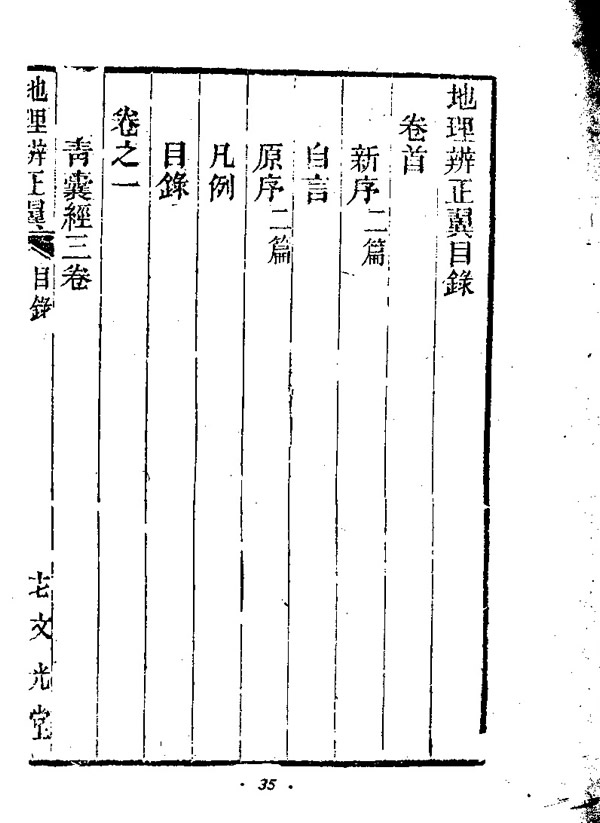 地理辨正翼目錄
卷首
新序二篇
自言
原序二篇
凡例
目錄
卷之一
青囊經三卷
地理辨正翼
目錄
老文光堂
· 35 ·